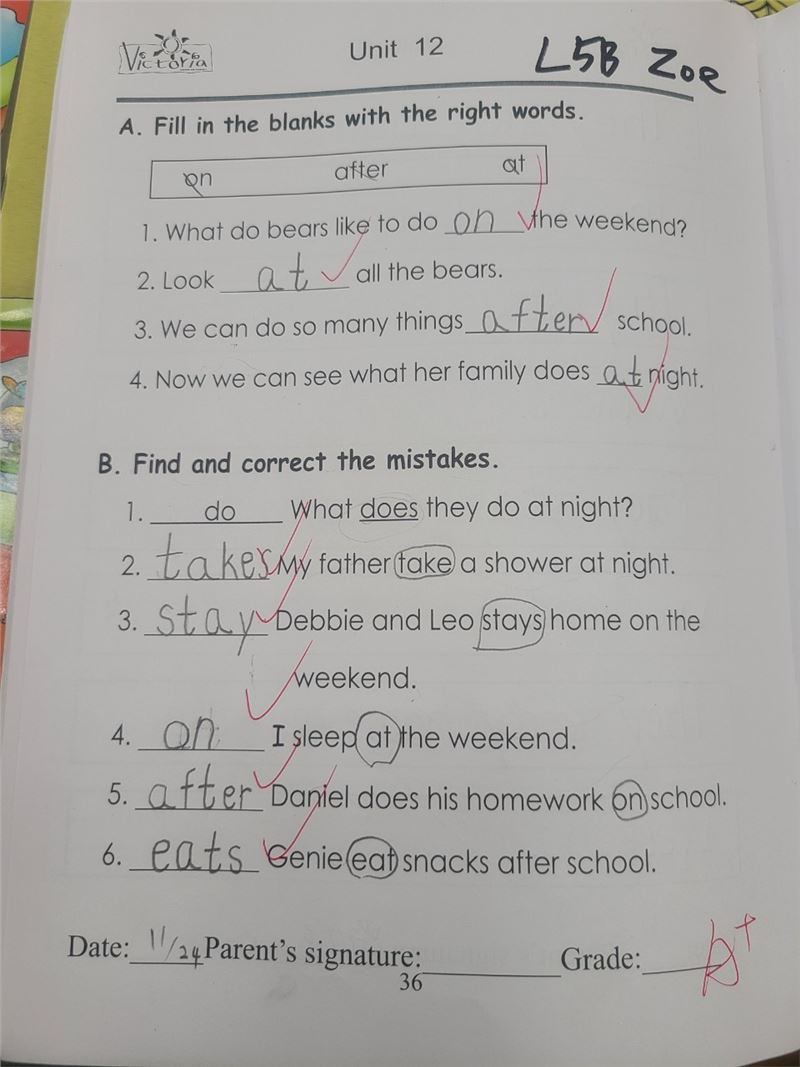 Victoria
Unit 12
L5B Zoe
A. Fill in the blanks with the right words.
on after at
1. What do bears like to do on the weekend?
2. Look at all the bears.
3. We can do so many things after school.
4. Now we can see what her family does at night.
B. Find and correct the mistakes.
1. do What does they do at night?
2. takes My father take a shower at night.
3. stay Debbie and Leo stays home on the
weekend.
4. on I sleep at the weekend.
5. after Daniel does his homework on school.
6. eats Genie eat snacks after school.
Date: 11/24 Parent's signature: Grade: A+
36